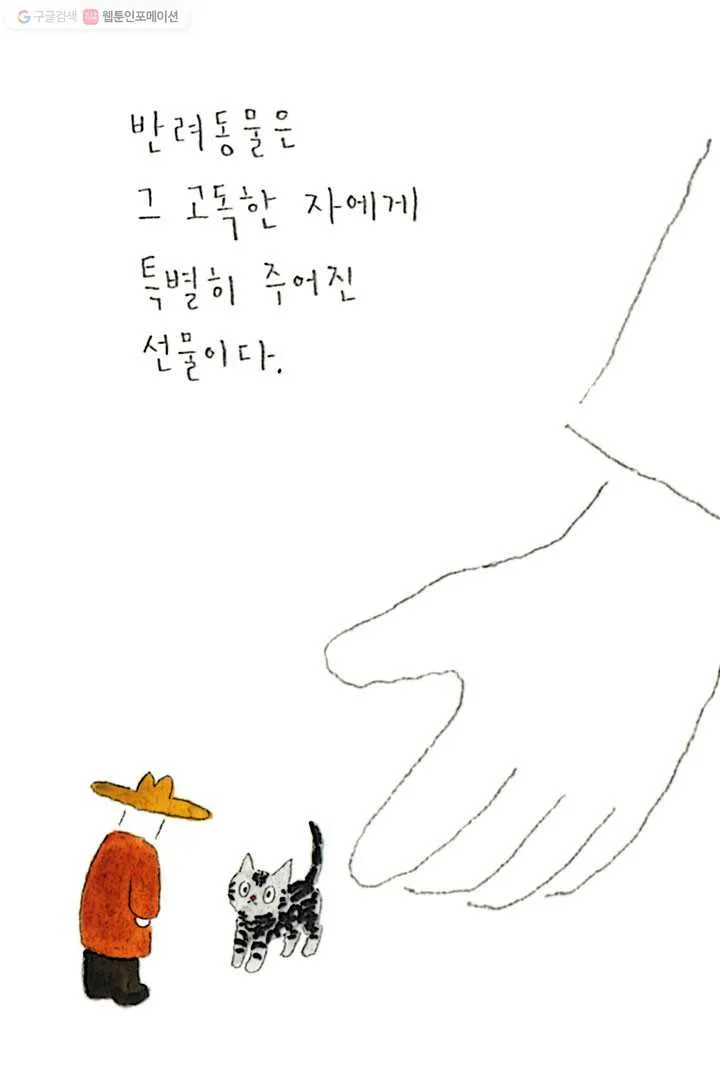 구글검색 웹툰인포메이션
반려동물은
그 고독한 자에게
특별히 주어진
선물이다.